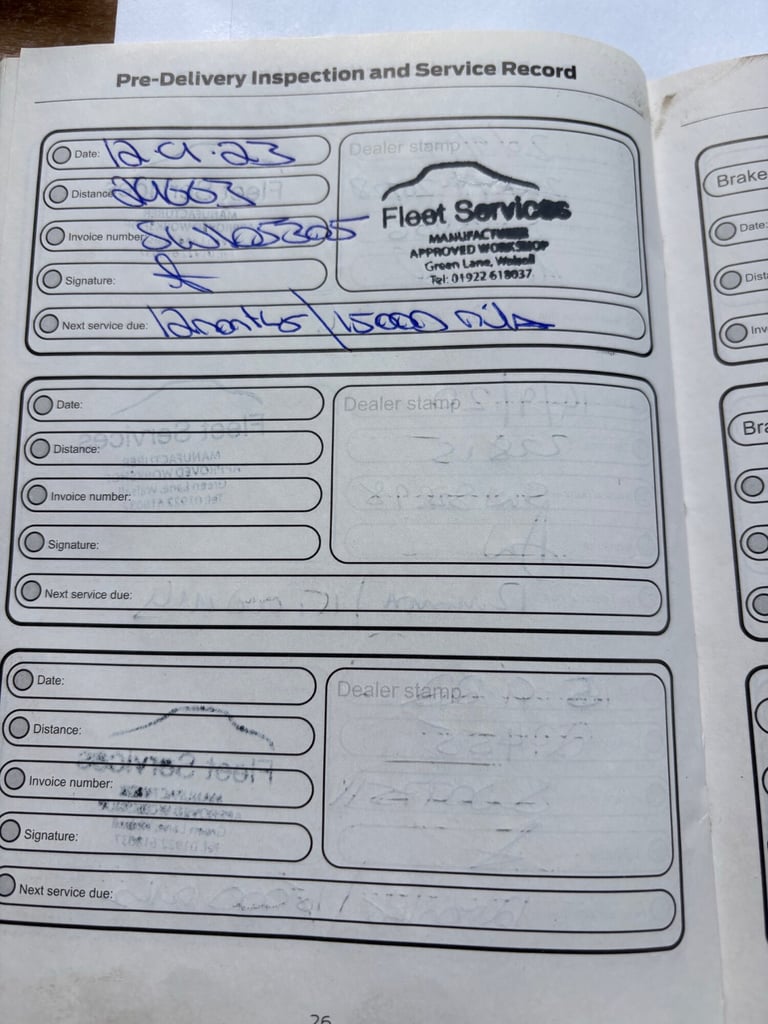 Pre-Delivery Inspection and Service Record
Date: 12.9.23
Distance:
Invoice number:
Signature:
Next service due: 12 months / 15000 miles
Dealer stamp
Fleet Services
MANUFACTURER
APPROVED WORKSHOP
Green Lane, Walsall
Tel: 01922 618037
Date:
Distance:
Invoice number:
Signature:
Next service due:
Dealer stamp
Date:
Distance:
Invoice number:
Signature:
Next service due:
Dealer stamp
26
Brake
Date:
Dist
Inv
Bra